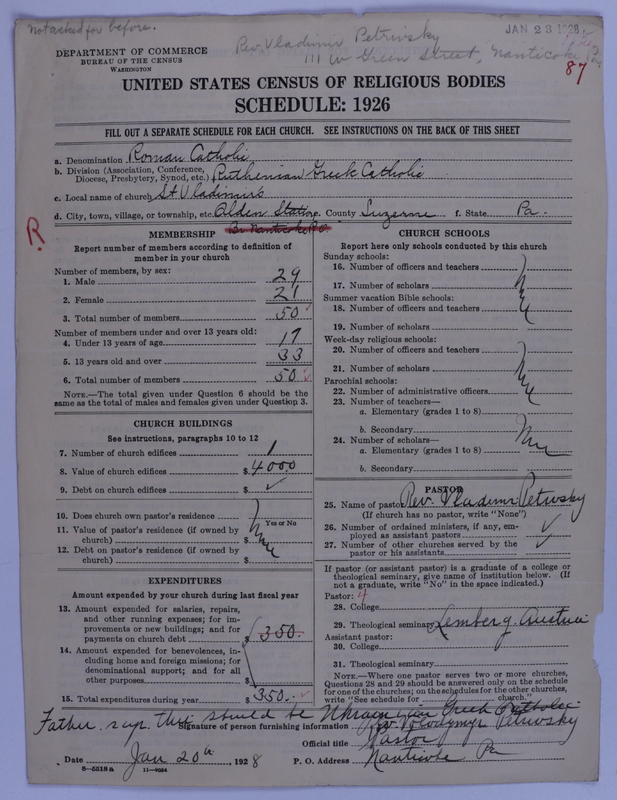 Not asked for before.
JAN 23 1928
Rev. Vladimir Petrivsky
111 W Green Street, Nanticoke
87
DEPARTMENT OF COMMERCE
BUREAU OF THE CENSUS
WASHINGTON
UNITED STATES CENSUS OF RELIGIOUS BODIES
SCHEDULE: 1926
FILL OUT A SEPARATE SCHEDULE FOR EACH CHURCH. SEE INSTRUCTIONS ON THE BACK OF THIS SHEET
a. Denomination Roman Catholic
b. Division (Association, Conference, Diocese, Presbytery, Synod, etc.) Ruthenian Greek Catholic
c. Local name of church St Vladimirs
d. City, town, village, or township, etc. Alden Station e. County Luzerne f. State Pa.
R
MEMBERSHIP
Report number of members according to definition of
member in your church
Number of members, by sex:
1. Male 29
2. Female 21
3. Total number of members 50
Number of members under and over 13 years old:
4. Under 13 years of age 17
5. 13 years old and over 33
6. Total number of members 50
NOTE.—The total given under Question 6 should be the
same as the total of males and females given under Question 3.
CHURCH BUILDINGS
See instructions, paragraphs 10 to 12
7. Number of church edifices 1
8. Value of church edifices $ 4000
9. Debt on church edifices $ ✓
10. Does church own pastor's residence
Yes or No
11. Value of pastor's residence (if owned by
church) $
12. Debt on pastor's residence (if owned by
church) $
EXPENDITURES
Amount expended by your church during last fiscal year
13. Amount expended for salaries, repairs,
and other running expenses; for im-
provements or new buildings; and for
payments on church debt $ 350.
14. Amount expended for benevolences, in-
cluding home and foreign missions; for
denominational support; and for all
other purposes $
15. Total expenditures during year $ 350.
CHURCH SCHOOLS
Report here only schools conducted by this church
Sunday schools:
16. Number of officers and teachers
17. Number of scholars
Summer vacation Bible schools:
18. Number of officers and teachers
19. Number of scholars
Week-day religious schools:
20. Number of officers and teachers
21. Number of scholars
Parochial schools:
22. Number of administrative officers
23. Number of teachers—
a. Elementary (grades 1 to 8)
b. Secondary
24. Number of scholars—
a. Elementary (grades 1 to 8)
b. Secondary
PASTOR
25. Name of pastor Rev. Vladimir Petrivsky
(If church has no pastor, write "None")
26. Number of ordained ministers, if any, em-
ployed as assistant pastors ✓
27. Number of other churches served by the
pastor or his assistants ✓
If pastor (or assistant pastor) is a graduate of a college or
theological seminary, give name of institution below. (If
not a graduate, write "No" in the space indicated.)
Pastor: 4
28. College
29. Theological seminary Lemberg, Austria
Assistant pastor:
30. College
31. Theological seminary
NOTE.—Where one pastor serves two or more churches,
Questions 28 and 29 should be answered only on the schedule
for one of the churches; on the schedules for the other churches,
write "See schedule for church."
Father says this should be Ukrainian Greek Catholic
Signature of person furnishing information Rev. Volodymyr Petrivsky
Official title Pastor
Date Jan 20th, 1928 P. O. Address Nanticoke Pa
8—5518a 11—9034